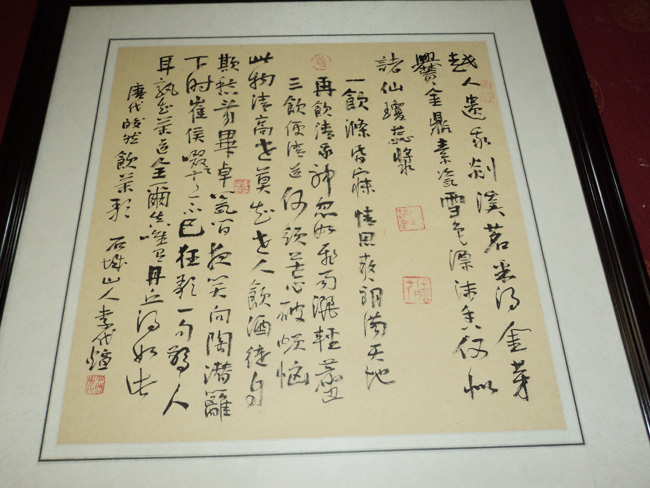 越人遗我剡溪茗采得金芽
爨金鼎素瓷雪色漂沫香何似
諸仙瓊蕊漿
一飲滌昏寐情思爽朗满天地
再飲清我神忽如飛雨灑輕塵
三飲便得道何須苦心破烦恼
此物清高世莫知世人飲酒徒自
欺愁看畢卓瓮间夜笑向陶潜籬
下时崔侯啜之意不已狂歌一句驚人
耳孰知茶道全爾真唯有丹丘得如此
唐代皎然飲茶歌 石城山人李代煊